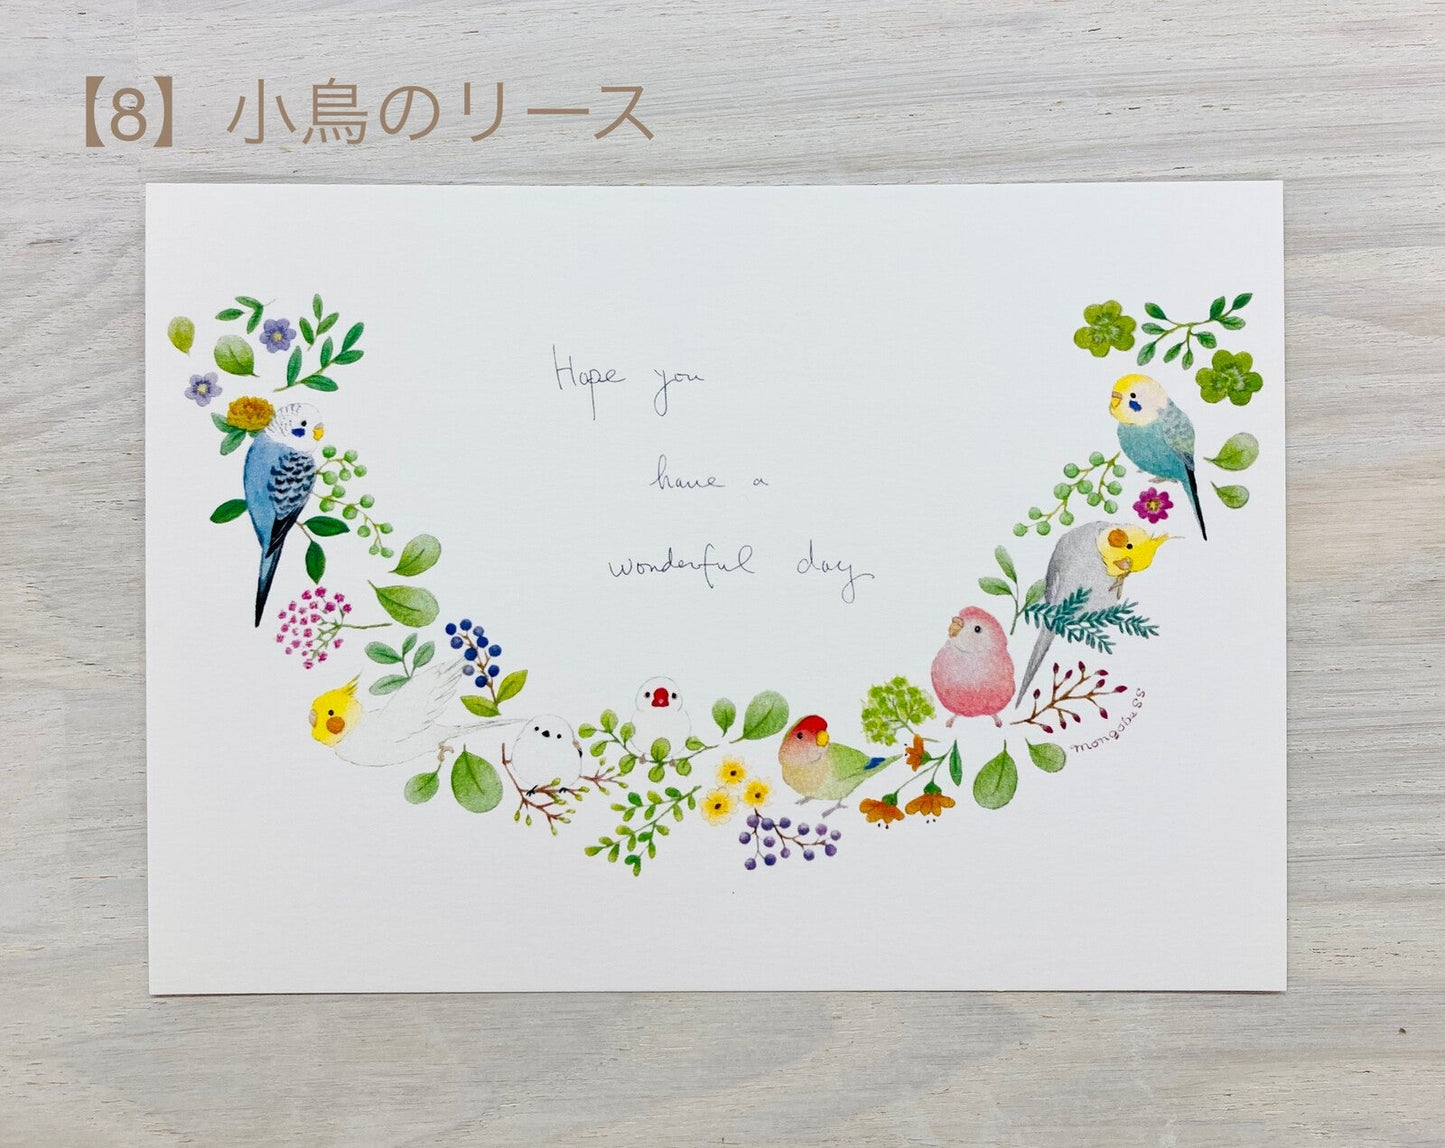 【8】小鳥のリース
Hope you
have a
wonderful day
mongoose SS